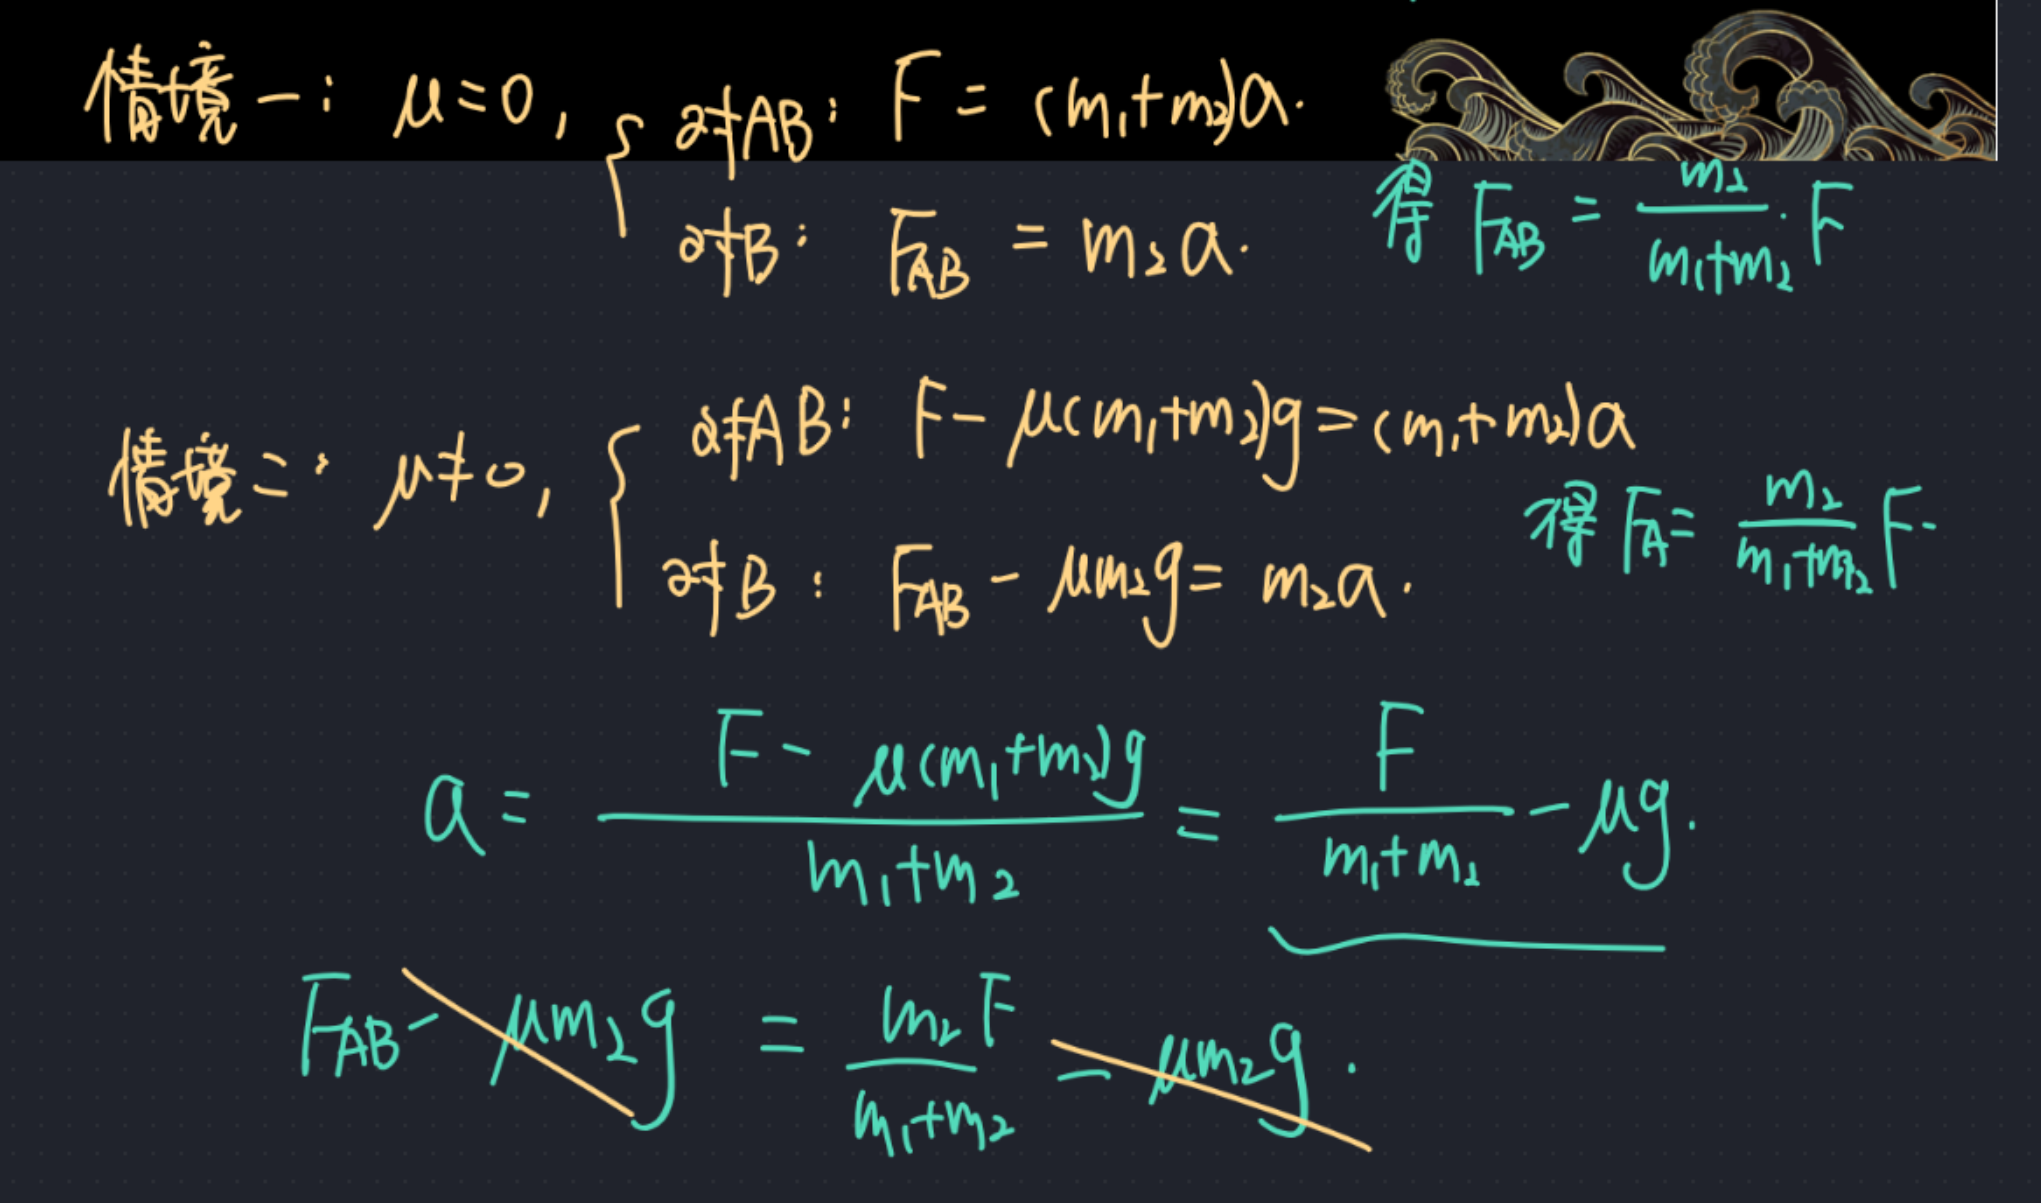 情境一: μ=0, 对AB: F = (m₁+m₂)a.
对B: F_AB = m₂a. 得 F_AB = m₂/(m₁+m₂) · F
情境二: μ≠0, 对AB: F - μ(m₁+m₂)g = (m₁+m₂)a
对B: F_AB - μm₂g = m₂a. 得 F_A = m₂/(m₁+m₂) F.
a = (F - μ(m₁+m₂)g)/(m₁+m₂) = F/(m₁+m₂) - μg.
F_AB - μm₂g = m₂F/(m₁+m₂) - μm₂g.